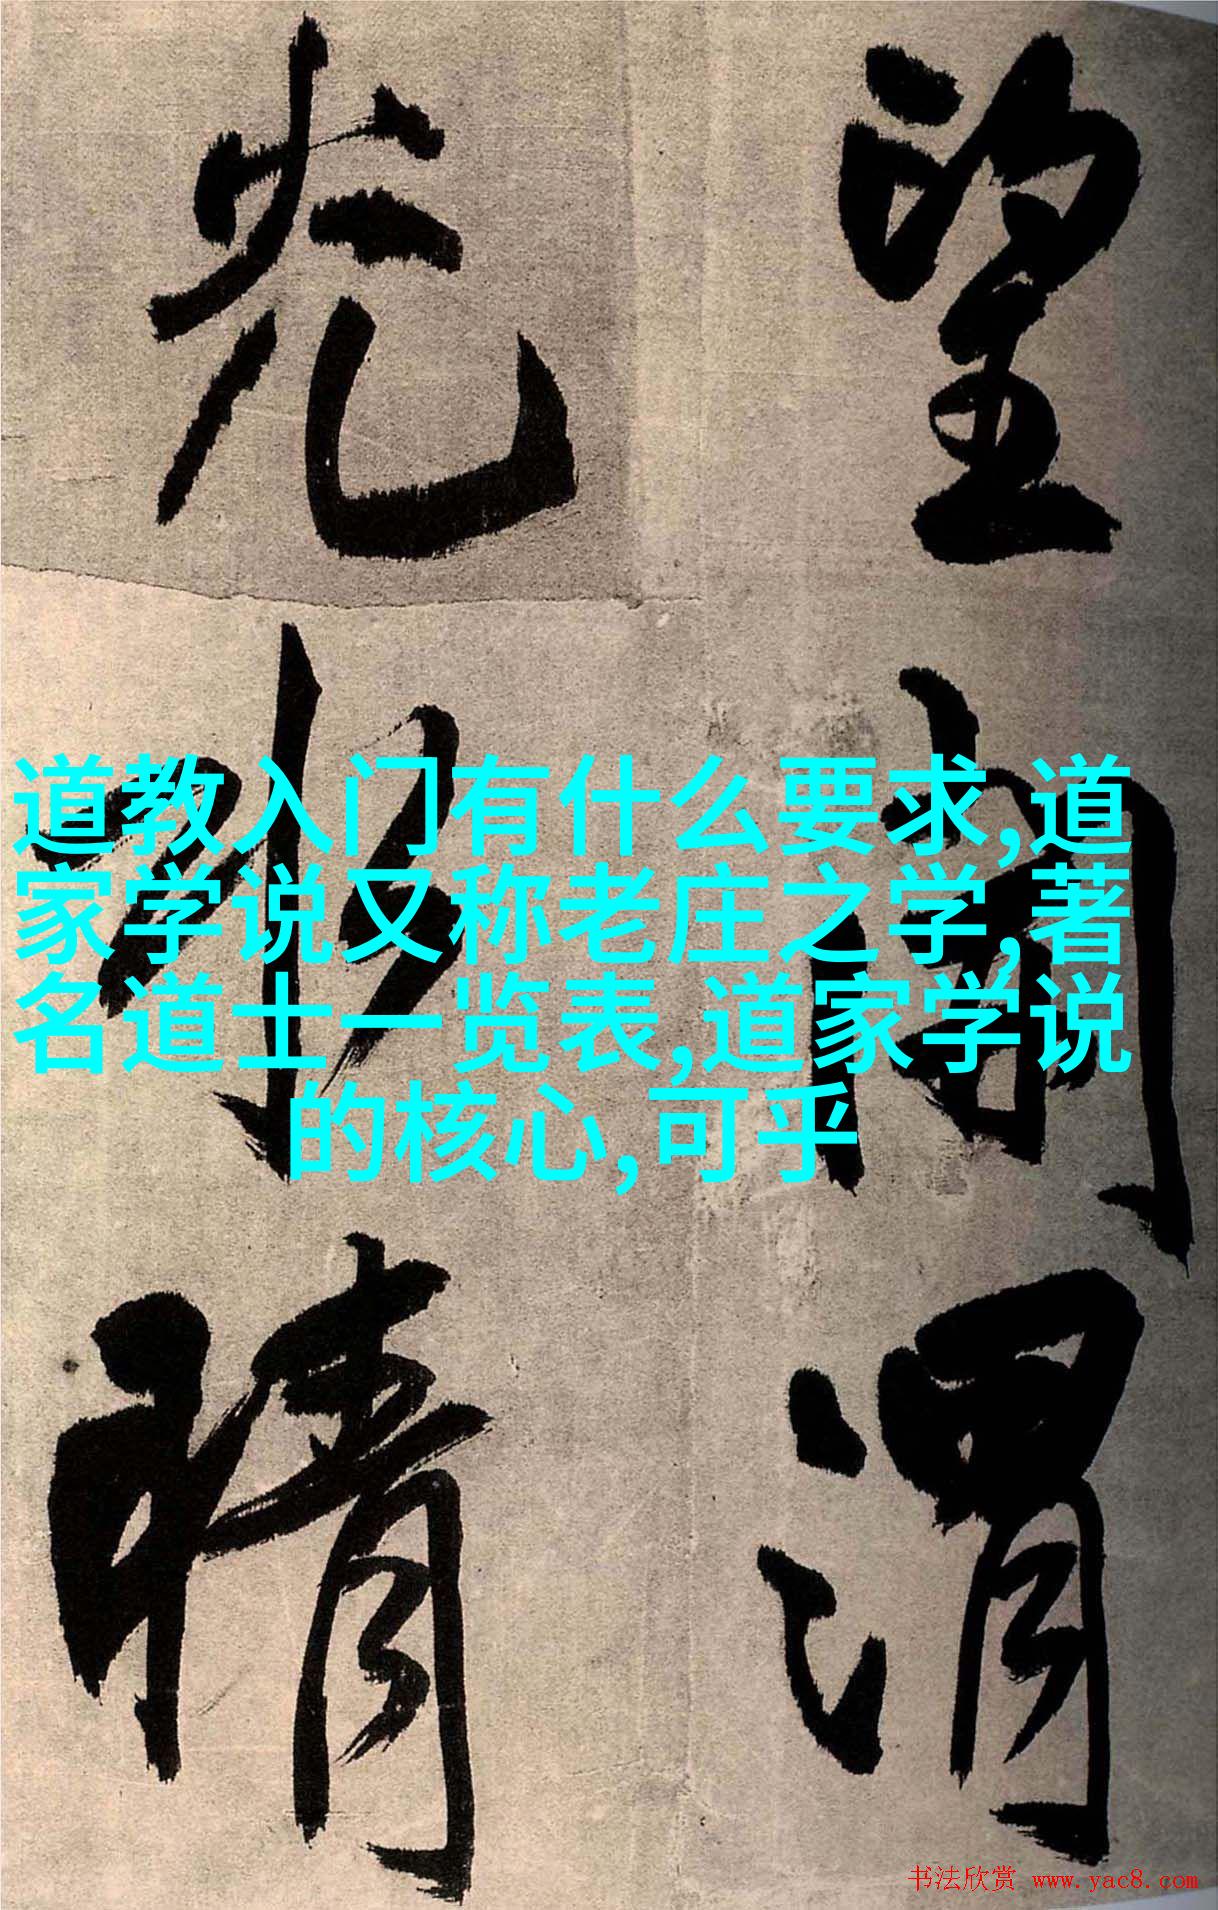 望闲渭
光水晴
道教入门有什么要求,道
家学说又称老庄之学,著
名道士一览表,道家学说
的核心,可乎
书法欣赏 www.yac8.com